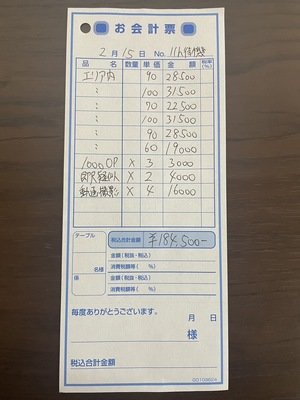 お会計票
2月15日 No. 11h待機
品名 数量 単価 金額 税率(%)
エリア内 90 28500
〃 100 31500
〃 70 22500
〃 100 31500
〃 90 28500
〃 60 19000
1000 OP × 3 3000
× 2 4000
動画撮影 × 4 16000
テーブル
名様
係
税込合計金額 ¥184,500-
金額(税抜・税込)
消費税額等( %)
金額(税抜・税込)
消費税額等( %)
毎度ありがとうございます。
月 日
様
税込合計金額